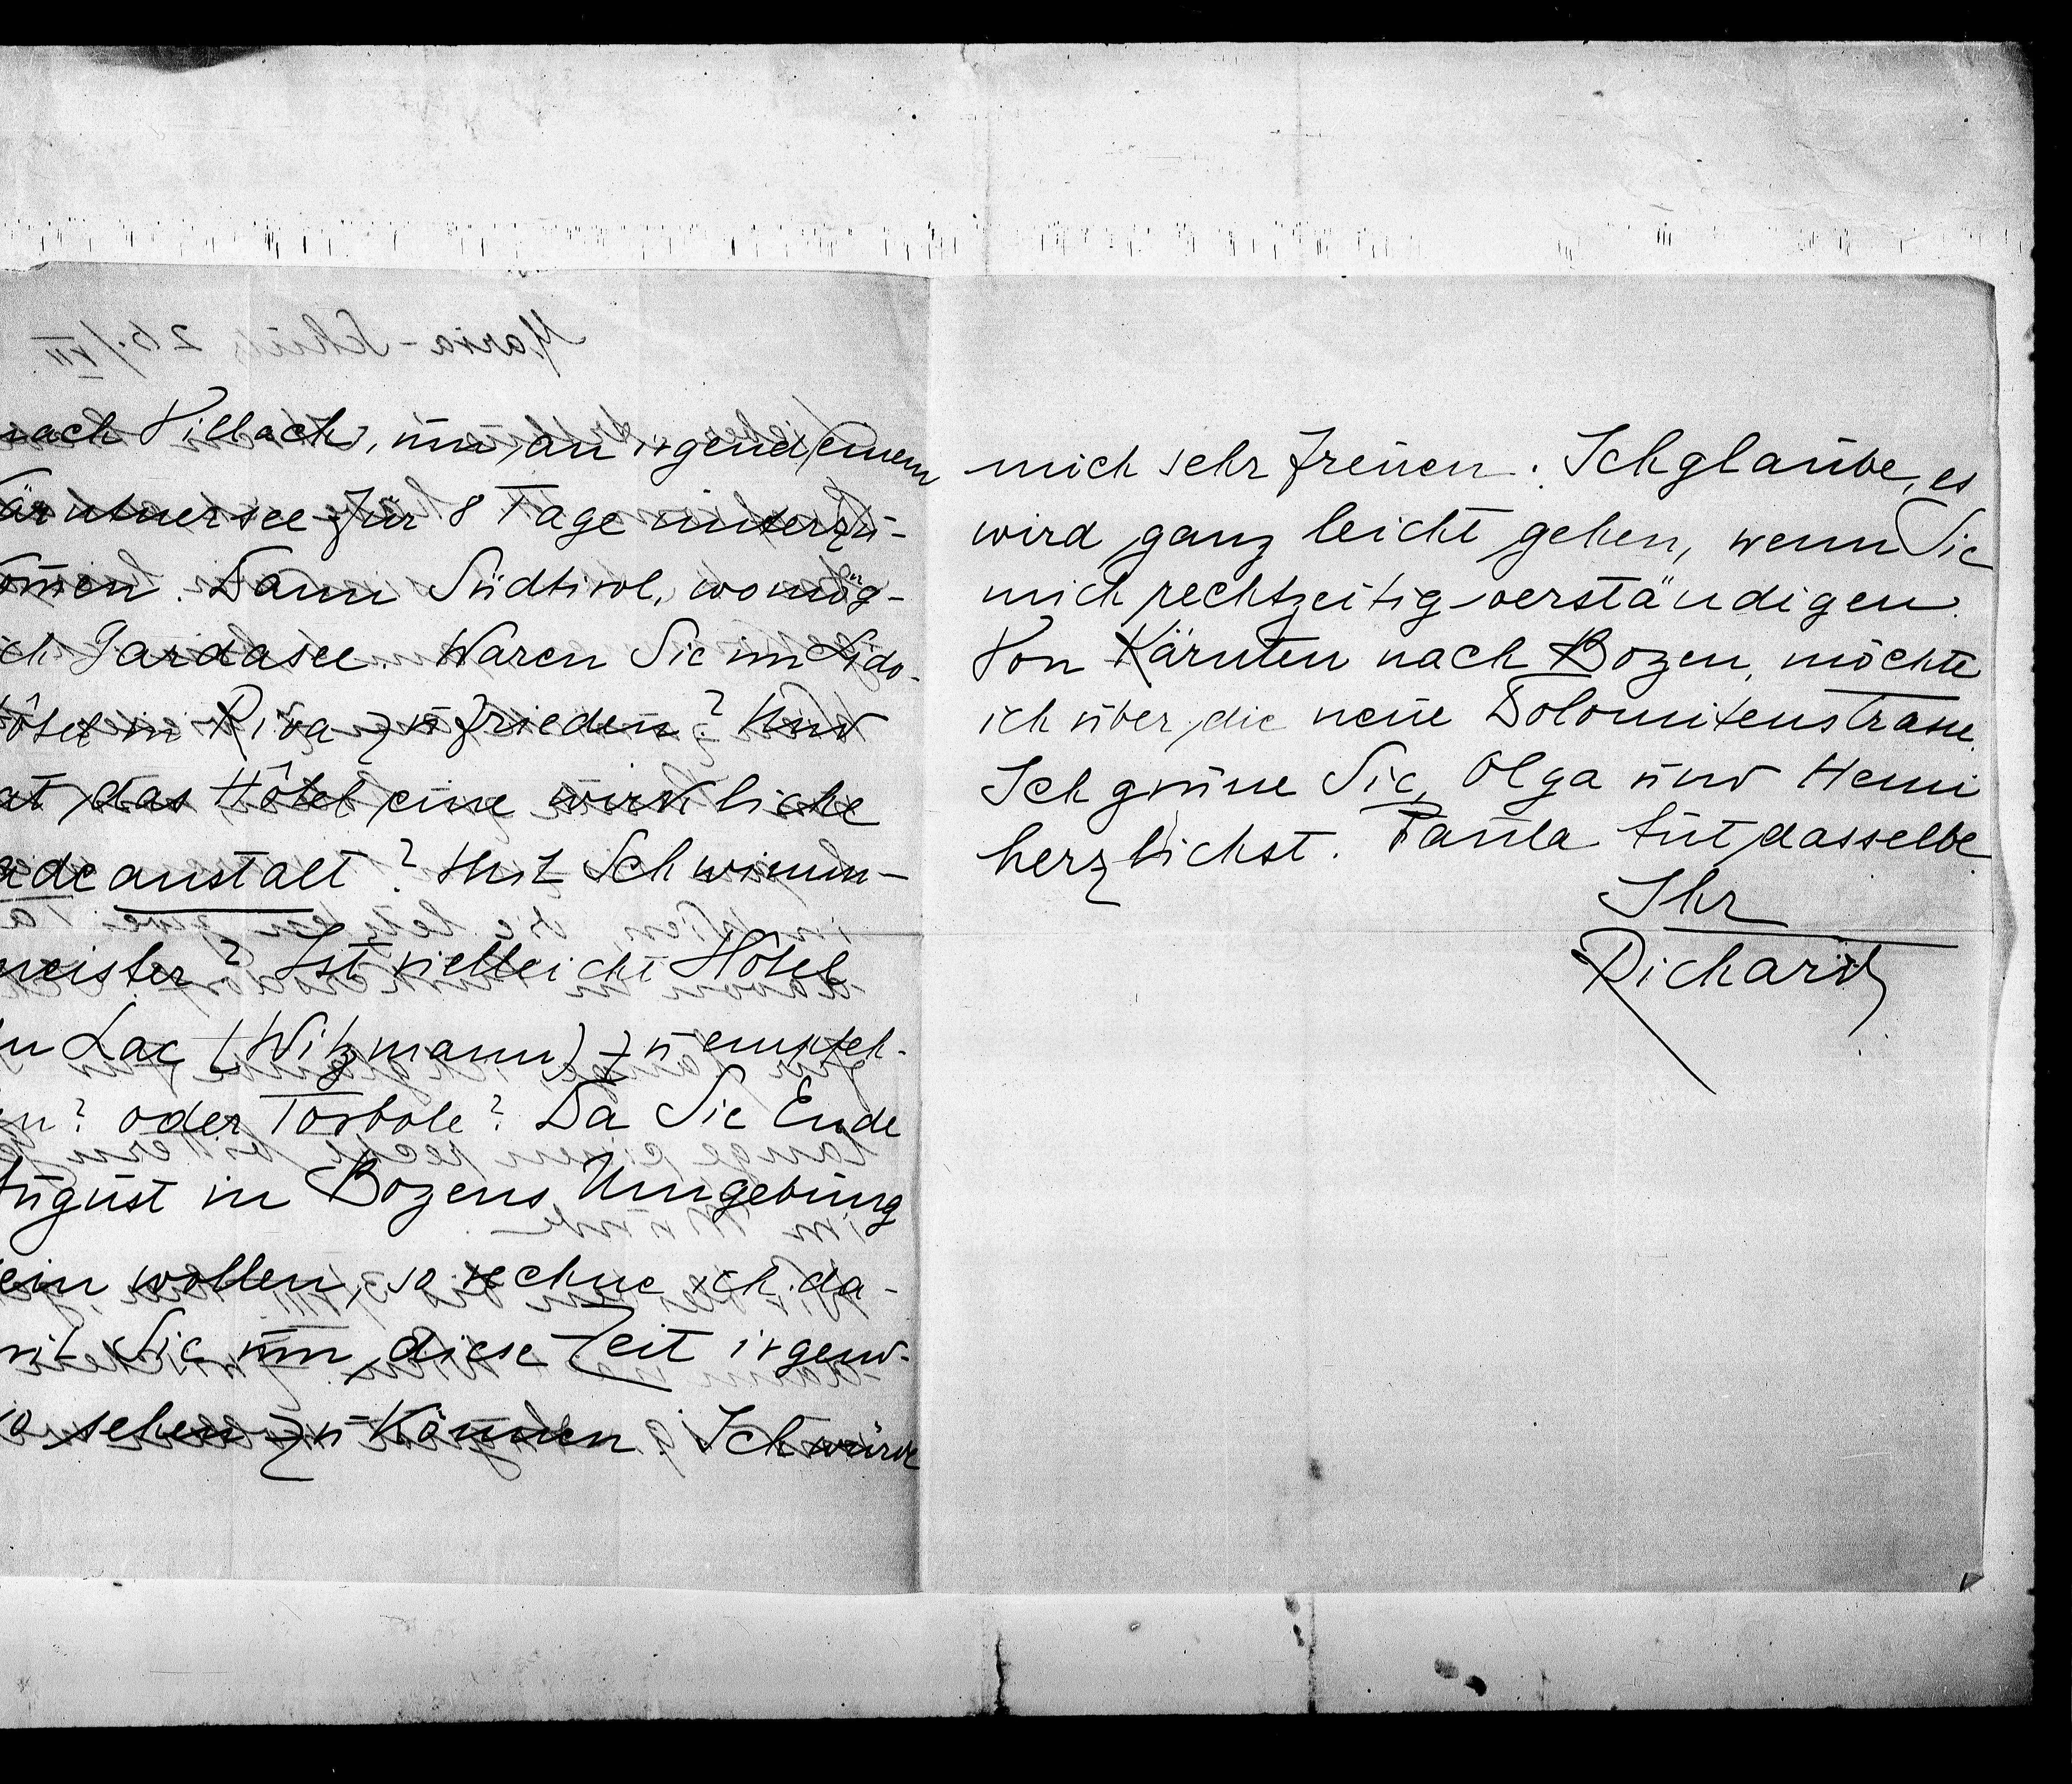 nach Villach, um an irgend einem
Kärntnersee für 8 Tage unterzu-
kommen. Dann Südtirol, womög-
lich Gardasee. Waren Sie im Lido-
Hôtel in Riva zufrieden? Und
hat das Hôtel eine wirkliche
Badeanstalt? Mit Schwimm-
meister? Ist vielleicht Hôtel
du Lac (Witzmann) zu empfeh-
len? oder Torbole? Da Sie Ende
August in Bozens Umgebung
sein wollen, so rechne ich da-
mit Sie um diese Zeit irgend-
wo sehen zu können. Ich würde
mich sehr freuen. Ich glaube, es
wird ganz leicht gehen, wenn Sie
mich rechtzeitig verständigen.
Von Kärnten nach Bozen, möchte
ich über die neue Dolomitenstrasse.
Ich grüsse Sie, Olga und Heini
herzlichst. Paula tut dasselbe
Ihr
Richard